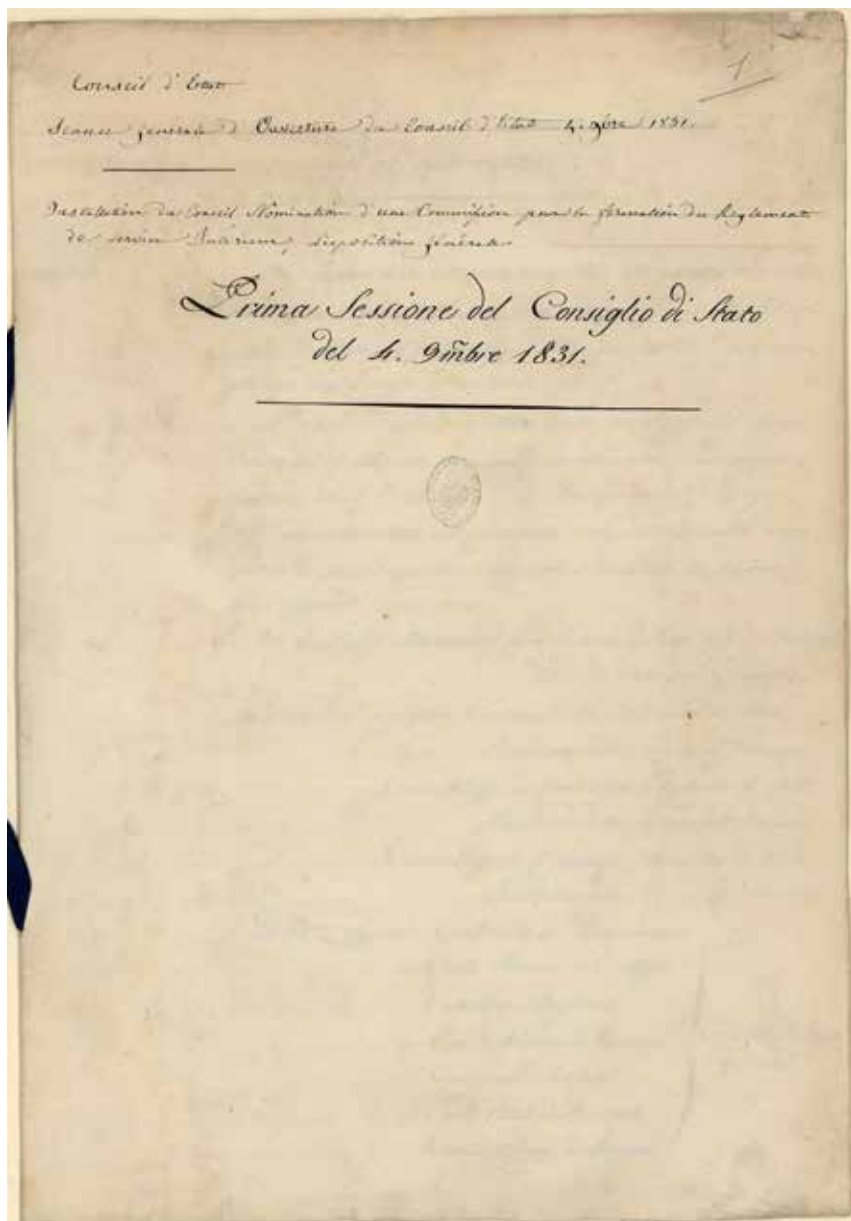 1
Conseil d'Etat
Séance générale d'Ouverture du Conseil d'état 4. 9bre 1831.
Installation du Conseil Nomination d'une Commission pour la formation du Réglement
de service Intérieur, dispositions générales
Prima Sessione del Consiglio di Stato
del 4. 9mbre 1831.